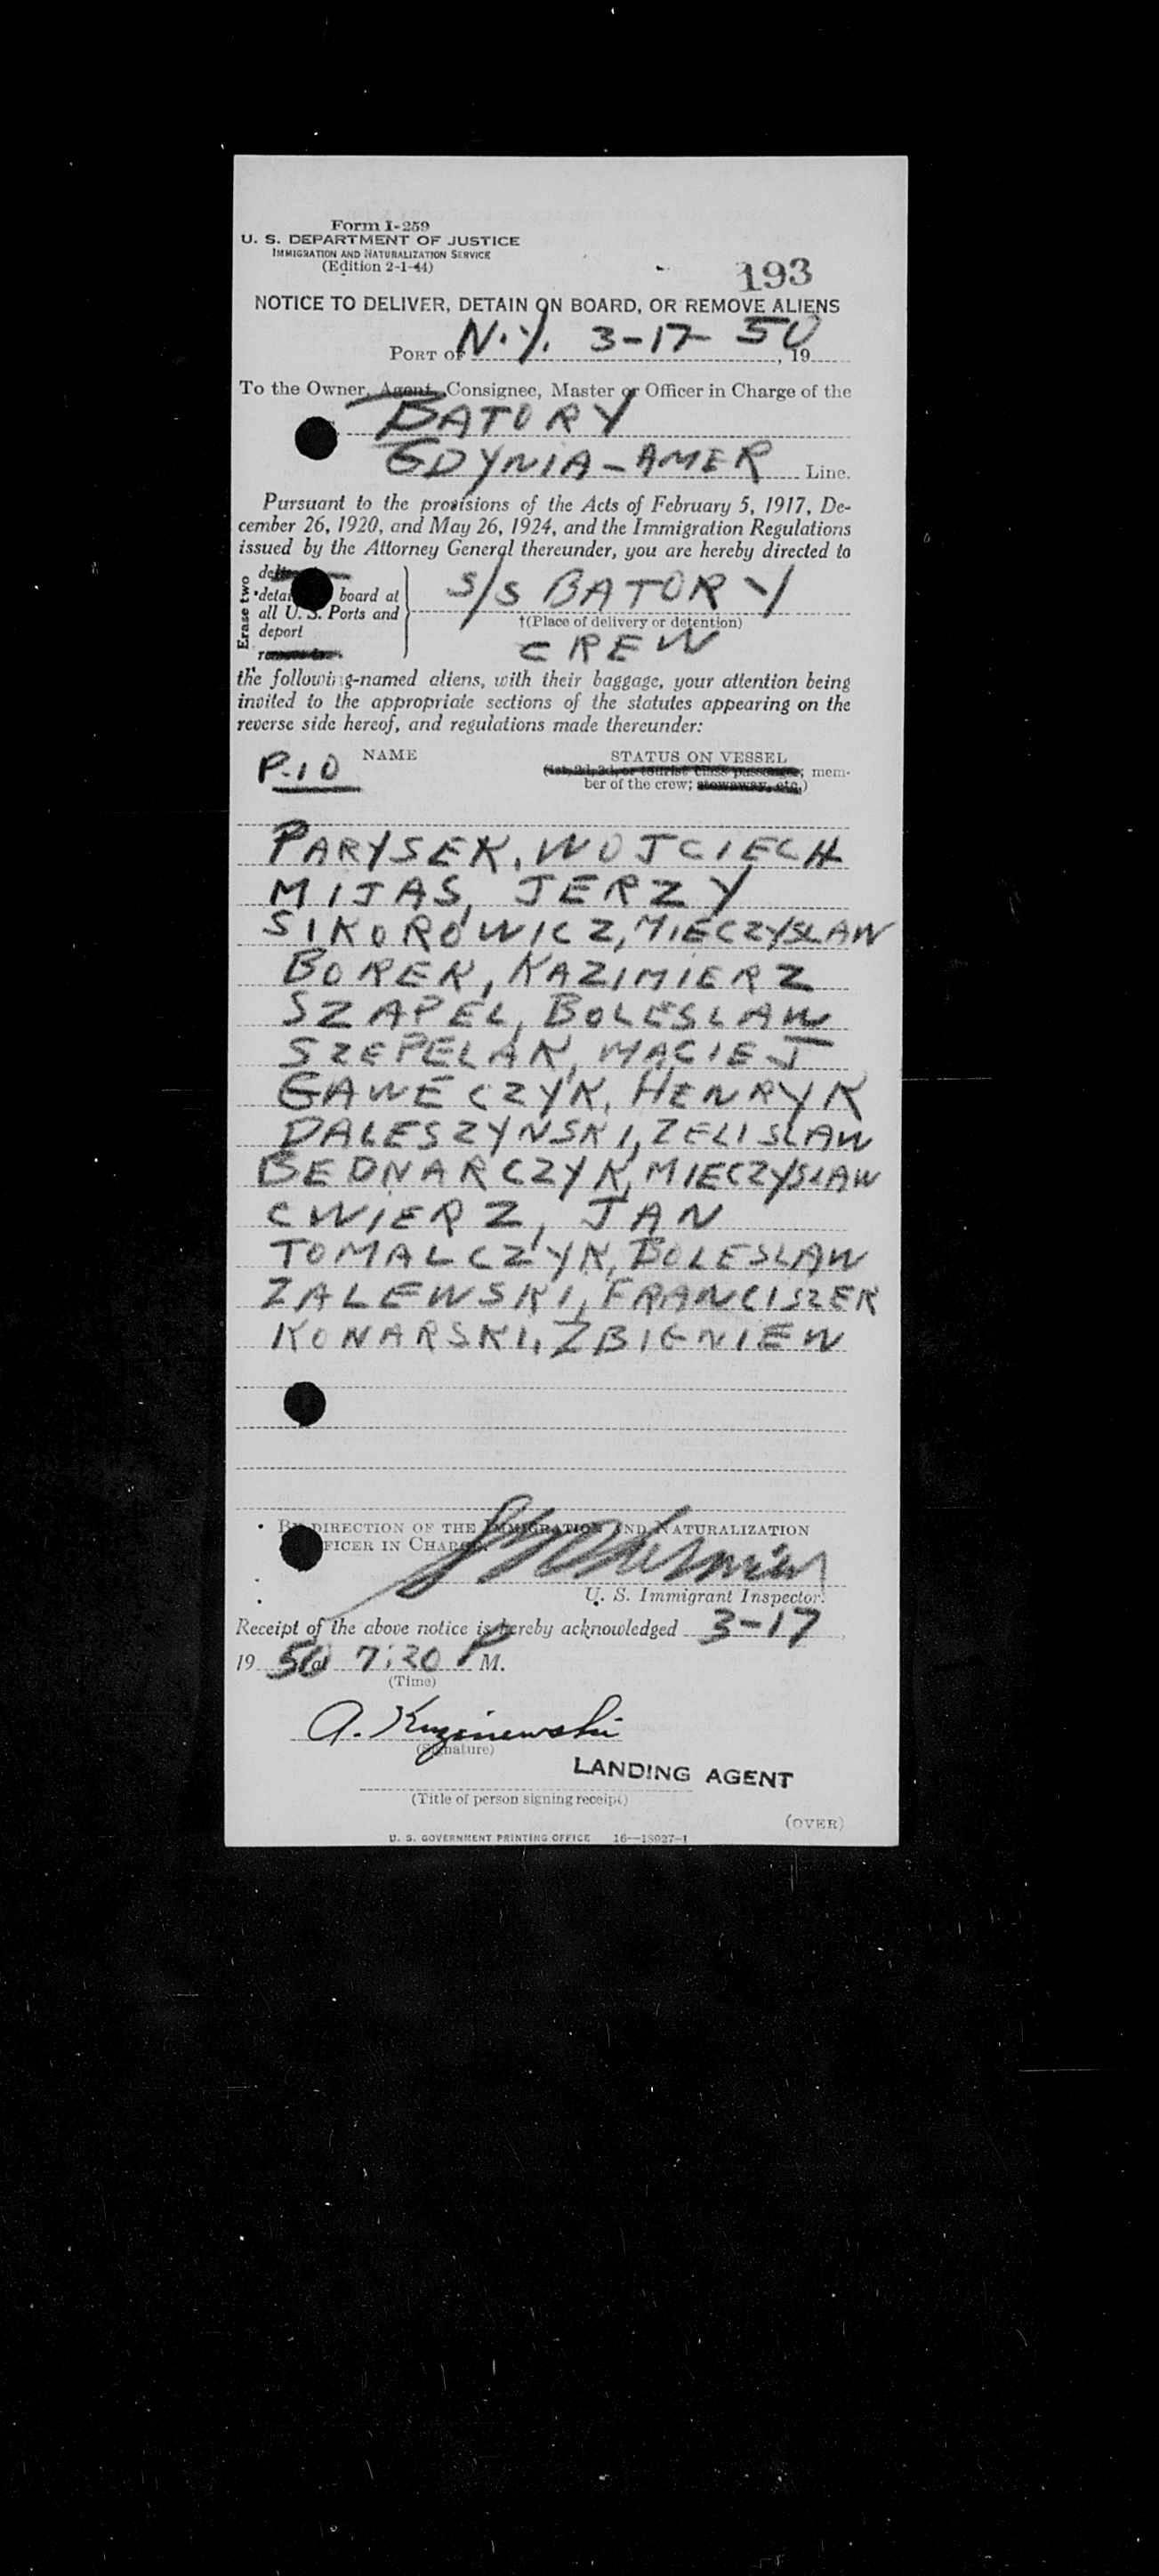 Form I-259
U. S. DEPARTMENT OF JUSTICE
IMMIGRATION AND NATURALIZATION SERVICE
(Edition 2-1-44)
193
NOTICE TO DELIVER, DETAIN ON BOARD, OR REMOVE ALIENS
PORT OF N.Y. 3-17- 50, 19
To the Owner, Agent, Consignee, Master or Officer in Charge of the
BATORY
GDYNIA-AMER Line.
Pursuant to the provisions of the Acts of February 5, 1917, De-
cember 26, 1920, and May 26, 1924, and the Immigration Regulations
issued by the Attorney General thereunder, you are hereby directed to
Erase two
board at
all U. S. Ports and
deport
S/S BATORY
†(Place of delivery or detention)
CREW
the following-named aliens, with their baggage, your attention being
invited to the appropriate sections of the statutes appearing on the
reverse side hereof, and regulations made thereunder:
P.10 NAME STATUS ON VESSEL
(1st, 2d, 3d, or tourist class passenger; mem-
ber of the crew; stowaway, etc.)
PARYSEK, WOJCIECH
MIJAS, JERZY
SIKOROWICZ, MIECZYSLAW
BOREK, KAZIMIERZ
SZAPEL, BOLESLAW
SZEPELAK, MACIEJ
GAWECZYK, HENRYK
DALESZYNSKI, ZELISLAW
BEDNARCZYK, MIECZYSLAW
CWIERZ, JAN
TOMALCZYK, BOLESLAW
ZALEWSKI, FRANCISZEK
KONARSKI, ZBIGNIEW
BY DIRECTION OF THE IMMIGRATION AND NATURALIZATION
OFFICER IN CHARGE.
U. S. Immigrant Inspector.
Receipt of the above notice is hereby acknowledged 3-17,
19 50 at 7:20 P M.
(Time)
A.
(Signature)
LANDING AGENT
(Title of person signing receipt)
(OVER)
U. S. GOVERNMENT PRINTING OFFICE 16—18027-1